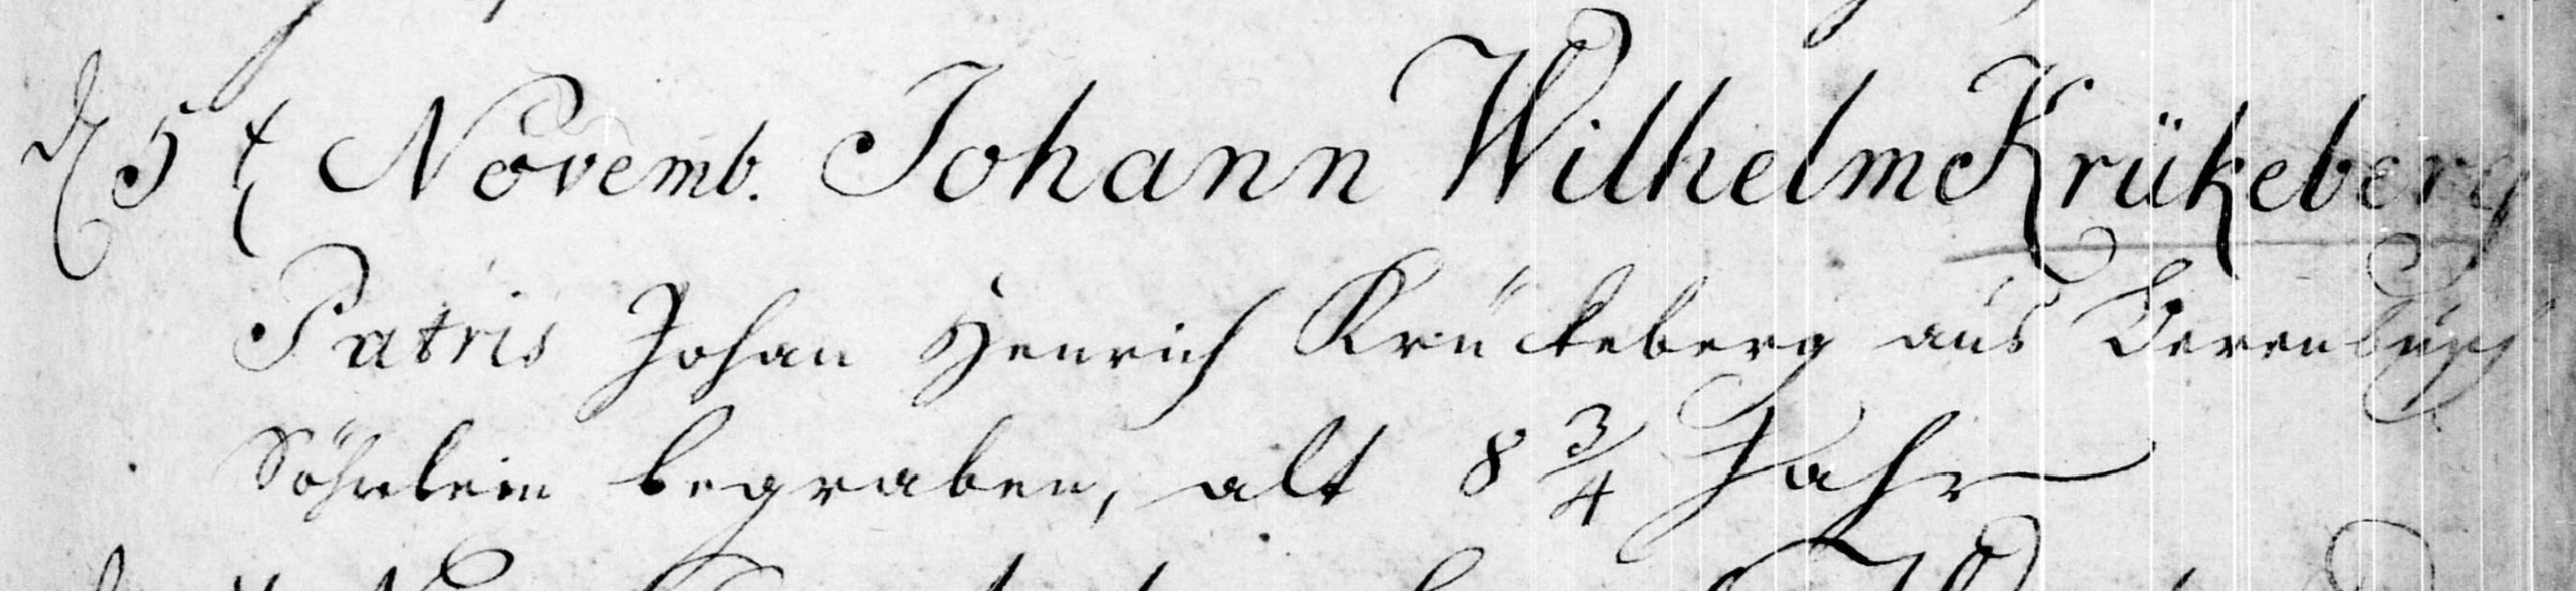 d 5t Novemb. Johann Wilhelm Krükeberg
Patris Johan Henrich Krückeberg aus
Söhnlein begraben, alt 8 3/4 Jahr